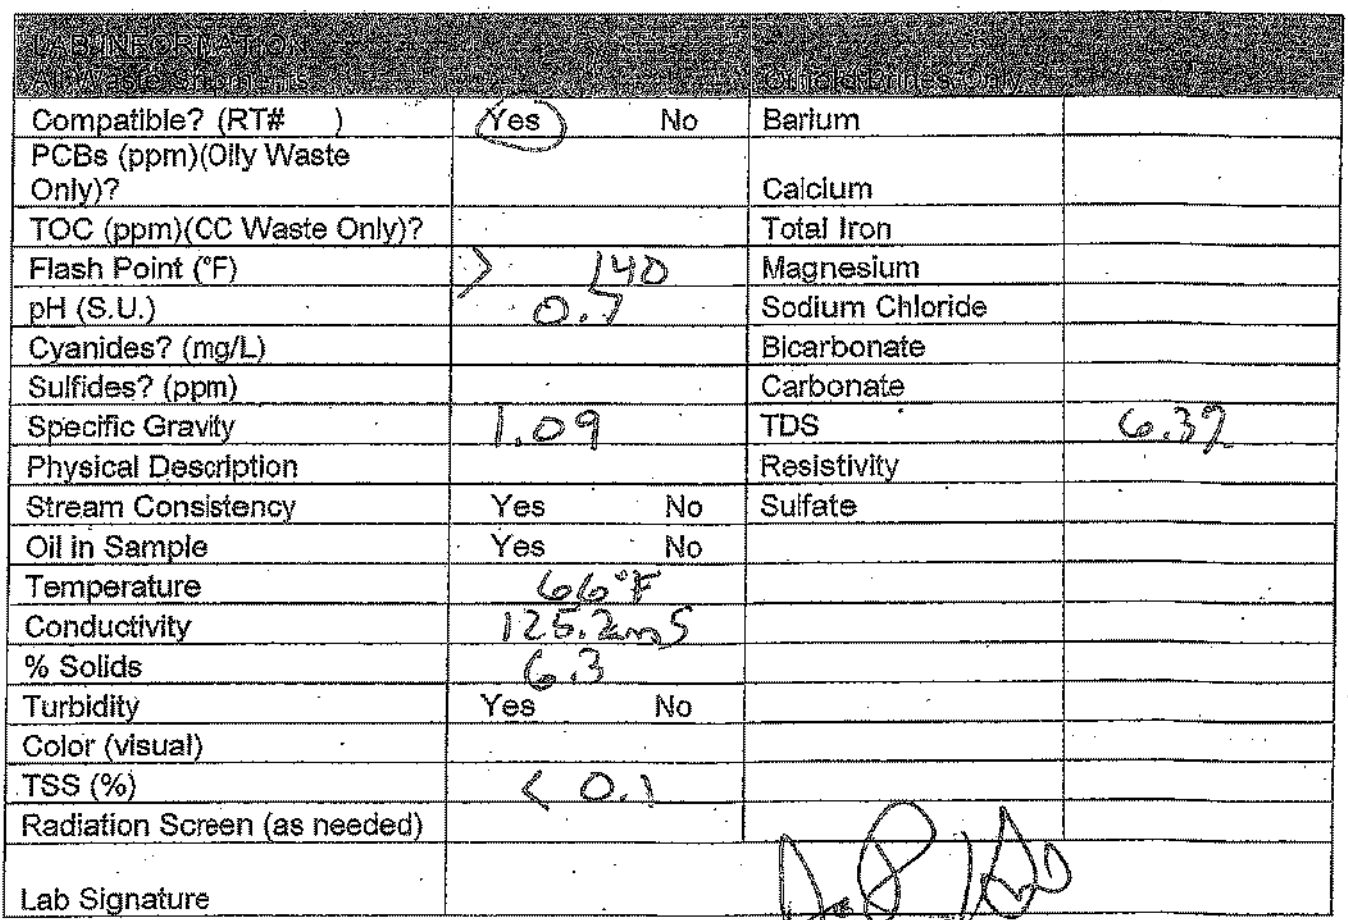 LAB INFORMATION
All Waste Shipments Oilfield Brines Only
Compatible? (RT# ) Yes No Barium
PCBs (ppm)(Oily Waste
Only)? Calcium
TOC (ppm)(CC Waste Only)? Total Iron
Flash Point (°F) > 140 Magnesium
pH (S.U.) 0.7 Sodium Chloride
Cyanides? (mg/L) Bicarbonate
Sulfides? (ppm) Carbonate
Specific Gravity 1.09 TDS 6.3%
Physical Description Resistivity
Stream Consistency Yes No Sulfate
Oil in Sample Yes No
Temperature 66°F
Conductivity 125.2mS
% Solids 6.3
Turbidity Yes No
Color (visual)
TSS (%) < 0.1
Radiation Screen (as needed)
Lab Signature